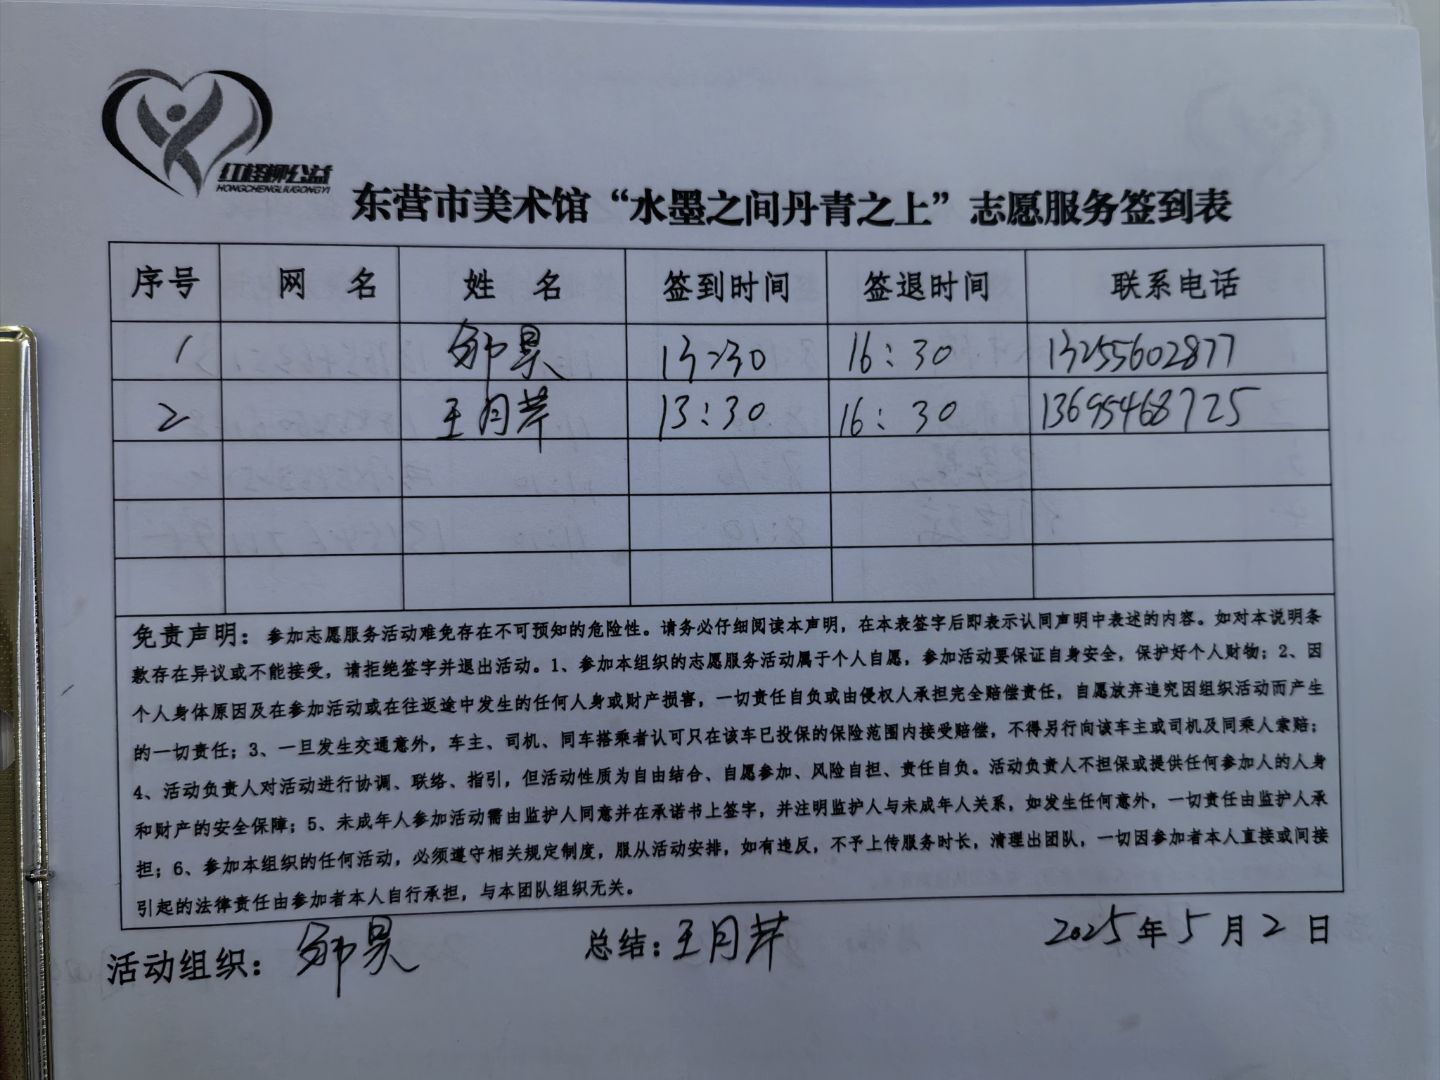 红柽柳公益
HONGCHENGLIUGONGYI
东营市美术馆“水墨之间丹青之上”志愿服务签到表
序号 网 名 姓 名 签到时间 签退时间 联系电话
1 邹昊 13:30 16:30 13255602877
2 王月芹 13:30 16:30 13695468725
免责声明：参加志愿服务活动难免存在不可预知的危险性。请务必仔细阅读本声明，在本表签字后即表示认同声明中表述的内容。如对本说明条
款存在异议或不能接受，请拒绝签字并退出活动。1、参加本组织的志愿服务活动属于个人自愿，参加活动要保证自身安全，保护好个人财物；2、因
个人身体原因及在参加活动或在往返途中发生的任何人身或财产损害，一切责任自负或由侵权人承担完全赔偿责任，自愿放弃追究因组织活动而产生
的一切责任；3、一旦发生交通意外，车主、司机、同车搭乘者认可只在该车已投保的保险范围内接受赔偿，不得另行向该车主或司机及同乘人索赔；
4、活动负责人对活动进行协调、联络、指引，但活动性质为自由结合、自愿参加、风险自担、责任自负。活动负责人不担保或提供任何参加人的人身
和财产的安全保障；5、未成年人参加活动需由监护人同意并在承诺书上签字，并注明监护人与未成年人关系，如发生任何意外，一切责任由监护人承
担；6、参加本组织的任何活动，必须遵守相关规定制度，服从活动安排，如有违反，不予上传服务时长，清理出团队，一切因参加者本人直接或间接
引起的法律责任由参加者本人自行承担，与本团队组织无关。
活动组织：邹昊 总结：王月芹 2025年5月2日